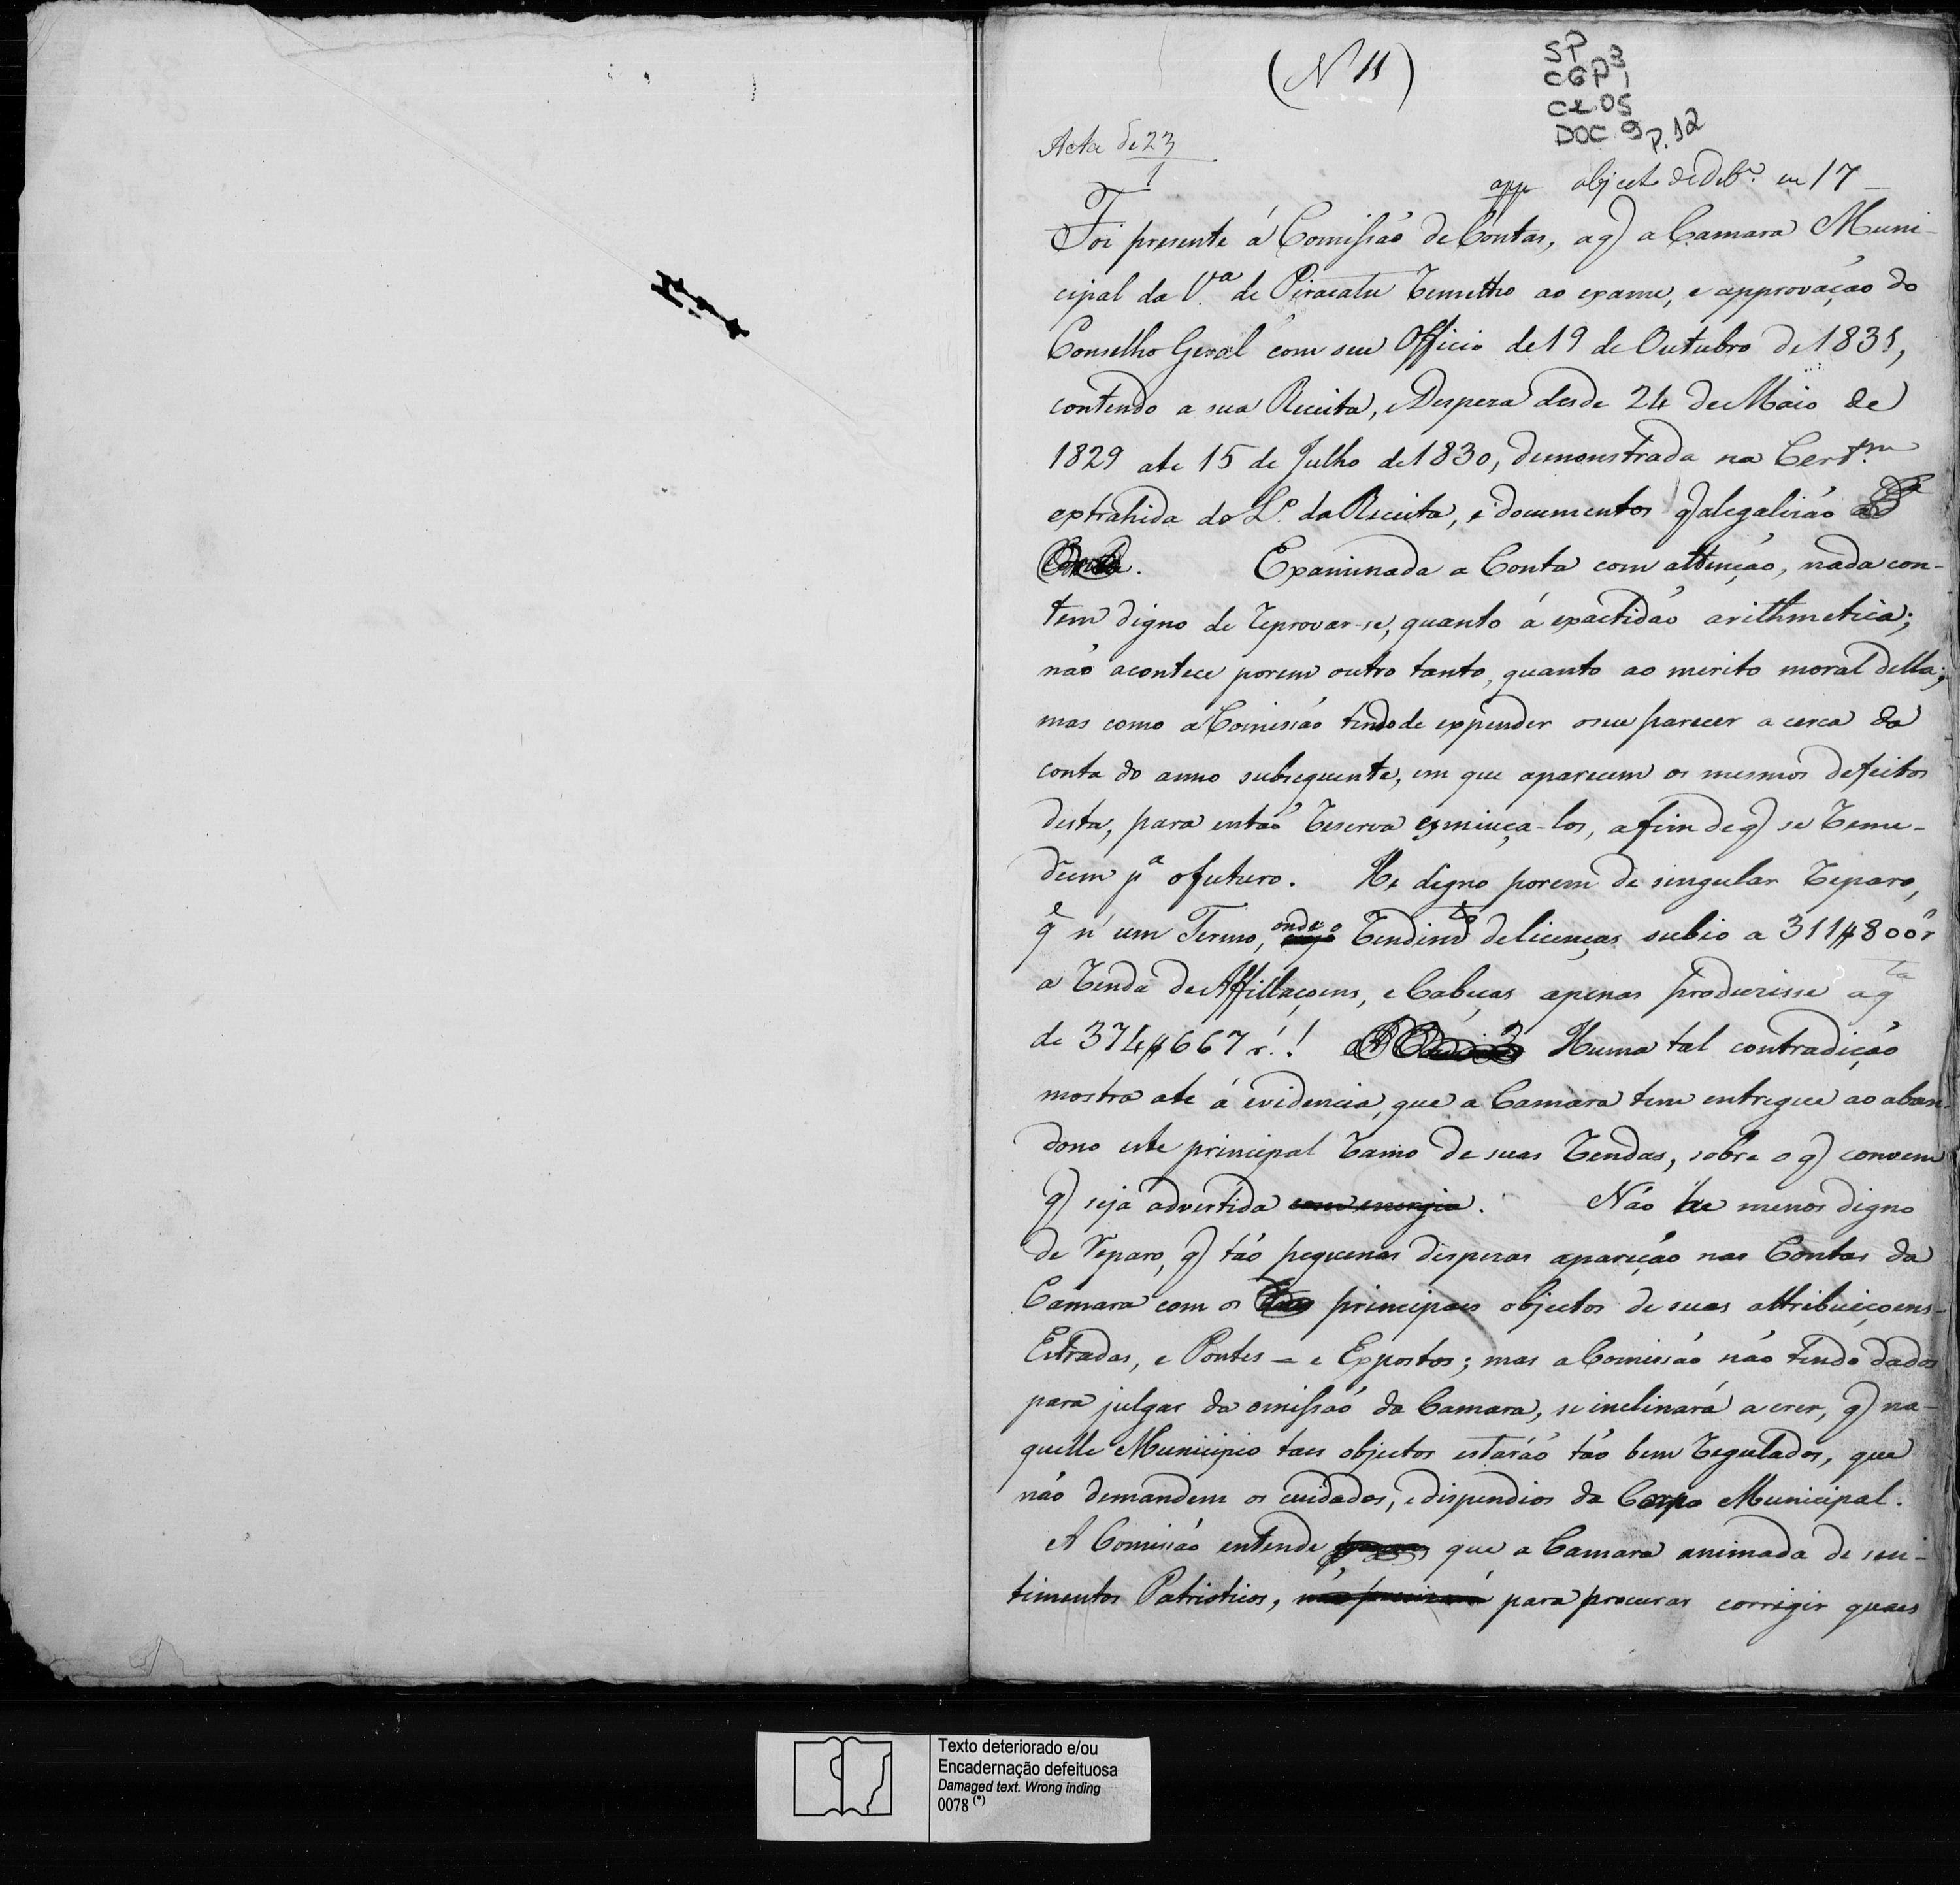 (N 11)
SP
CGP 3
1
CX 05
DOC 9 p. 12
Acta de 23
1
app objecto de Deb.e em 17
Foi presente á Comissão de Contas, a q a Camara Muni-
cipal da V.a de Piracatu remetteo ao exame, e approvação do
Conselho Geral com seu Officio de 19 de Outubro de 1831,
contendo a sua Receita, e Despeza desde 24 de Maio de
1829 ate 15 de Julho de 1830, demonstrada na Cert.m
extrahida do L.o da Receita, e documentos q a legalisão
. Examinada a Conta com attenção, nada con-
tem digno de reprovar-se, quanto á exactidão arithmetica;
não acontece porem outro tanto, quanto ao merito moral della;
mas como a Comissão tendo de expender o seu parecer a cerca da
conta do anno subsequente, em que aparecem os mesmos defeitos
desta, para então reserva esmiuça-los, a fim de q se reme-
deem p.a o futuro. He digno porem de singular reparo,
q n'um Termo, onde o rendim.to de licenças subio a 311$800 r
a renda de Affillaçoens, e Cabeças apenas produzisse a q.ta
de 374$667 r.! Huma tal contradição
mostra ate á evidencia, que a Camara tem entregue ao aban-
dono este principal ramo de suas rendas, sobre o q convem
q seja advertida com energia. Não he menos digno
de reparo, q tão pequenas despezas apareção nas Contas da
Camara com os principaes objectos de suas attribuiçoens -
Estradas, e Pontes = e Expostos; mas a Comissão não tendo dados
para julgar da omissão da Camara, se inclinará a crer, q na-
quelle Municipio taes objectos estarão tão bem regulados, que
não demandem os cuidados, e dispendios da Corpo Municipal.
A Comissão entende que a Camara animada de sen-
timentos Patrioticos, não precisará para procurar corrigir quaes
Texto deteriorado e/ou
Encadernação defeituosa
Damaged text. Wrong inding
0078 (*)